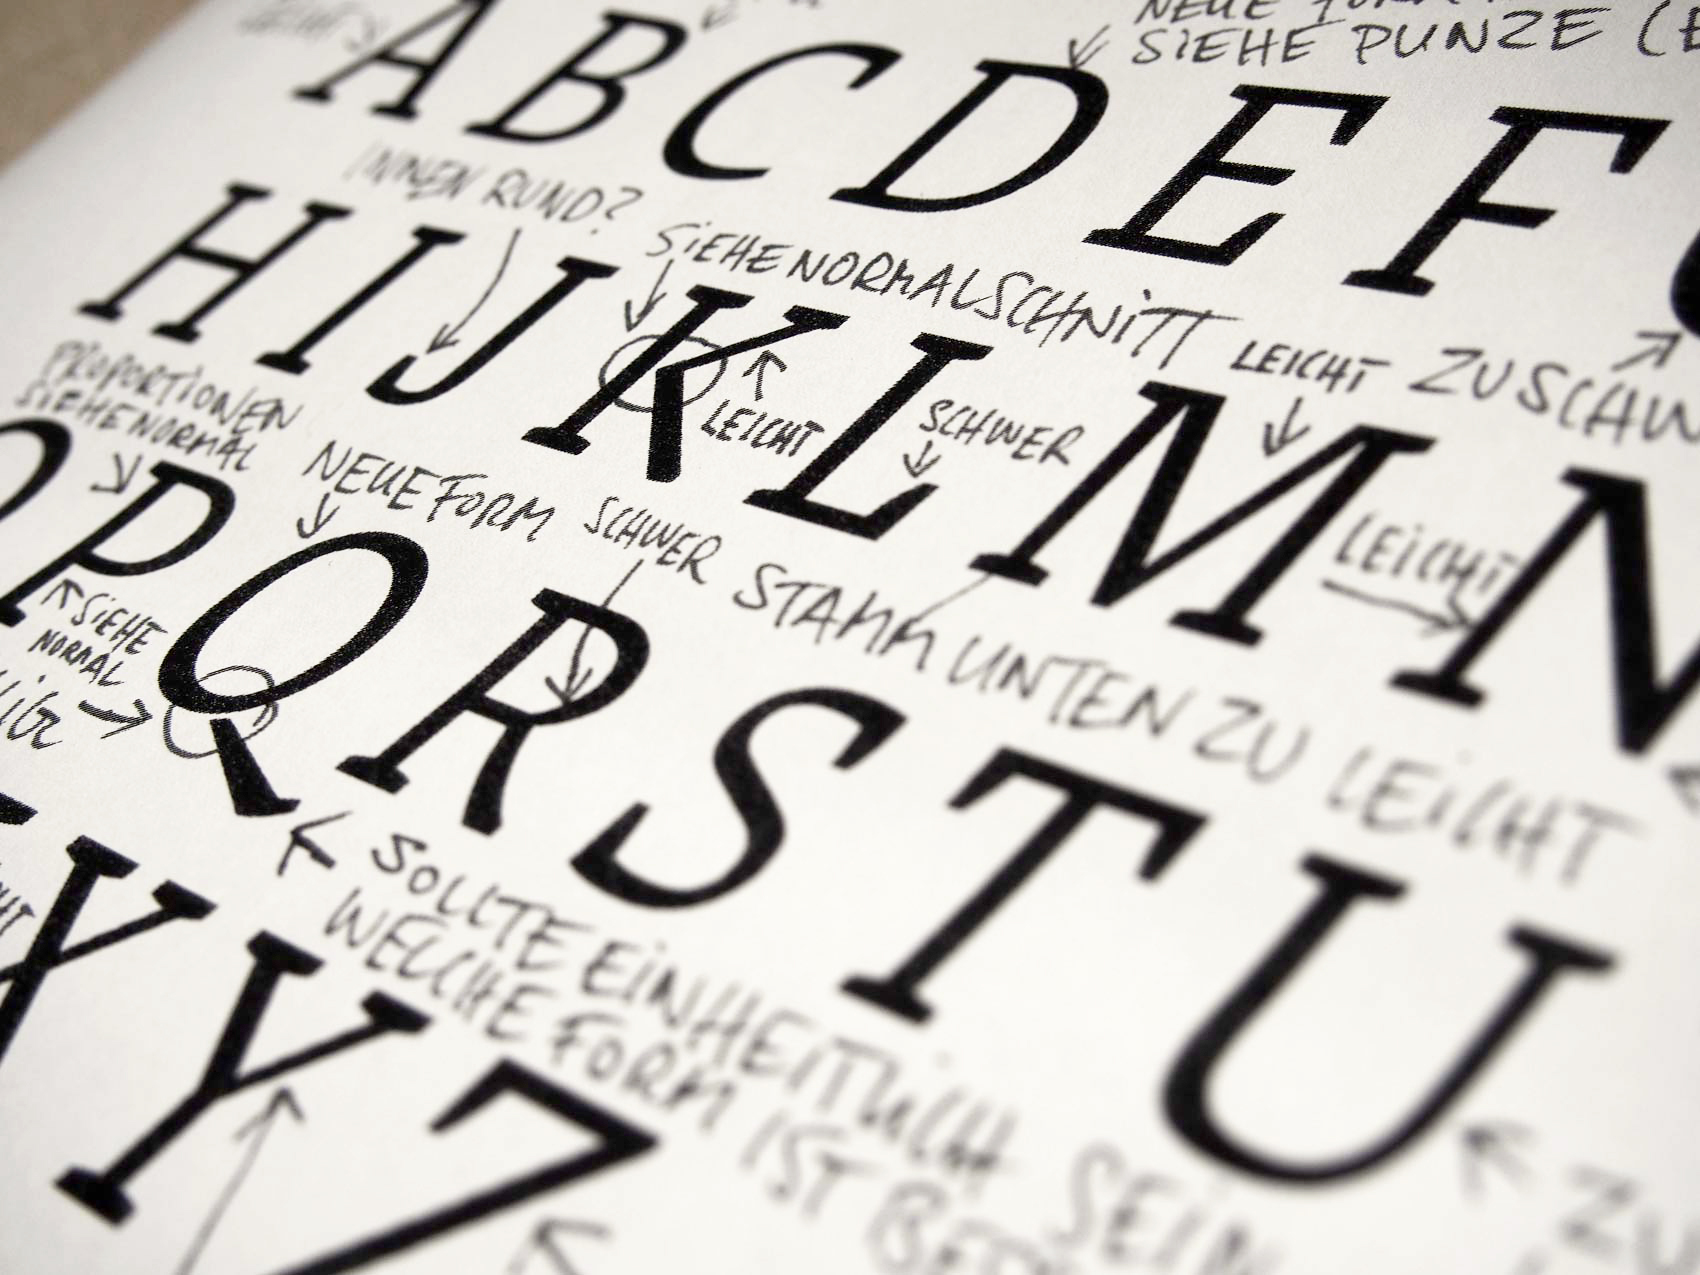 NEUE FORM
SIEHE PUNZE (E
A B C D E F
INNEN RUND?
SIEHE NORMALSCHNITT
H I J K L M N
LEICHT
ZU SCHW
LEICHT
SCHWER
LEICHT
PROPORTIONEN
SIEHE NORMAL
NEUE FORM
SCHWER
STAMM UNTEN ZU LEICHT
O P Q R S T U
SIEHE
NORMAL
SOLLTE EINHEITLICH SEIN
WELCHE FORM IST
X Y Z
ZU